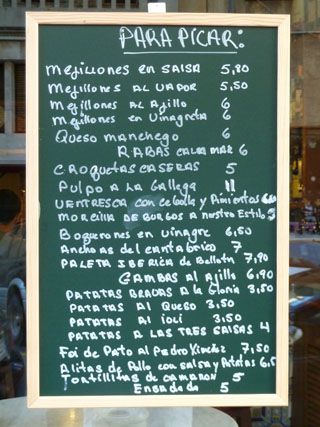 PARA PICAR:
Mejillones en SALSA 5,80
Mejillones AL VAPOR 5,50
Mejillones AL Ajillo 6
Mejillones en Vinagreta 6
Queso manchego 6
RABAS CALAMAR 6
CROQUETAS CASERAS 5
Pulpo A LA Gallega 11
VENTRESCA con cebolla y Pimientos
MORCILLA DE BURGOS A nuestro Estilo 5
Boquerones en vinagre 6,50
Anchoas del cantabrico 7
PALETA IBERICA de Bellota 7,90
GAMBAS Al Ajillo 6,90
PATATAS BRAVAS A la Gloria 3,50
PATATAS Al QUESO 3,50
PATATAS Al ioli 3,50
PATATAS A LAS TRES SALSAS 4
Foi de Pato al Pedro Ximénez 7,50
Alitas de Pollo con salsa y Patatas
Tortillitas de camaron 5
Ensalada 5